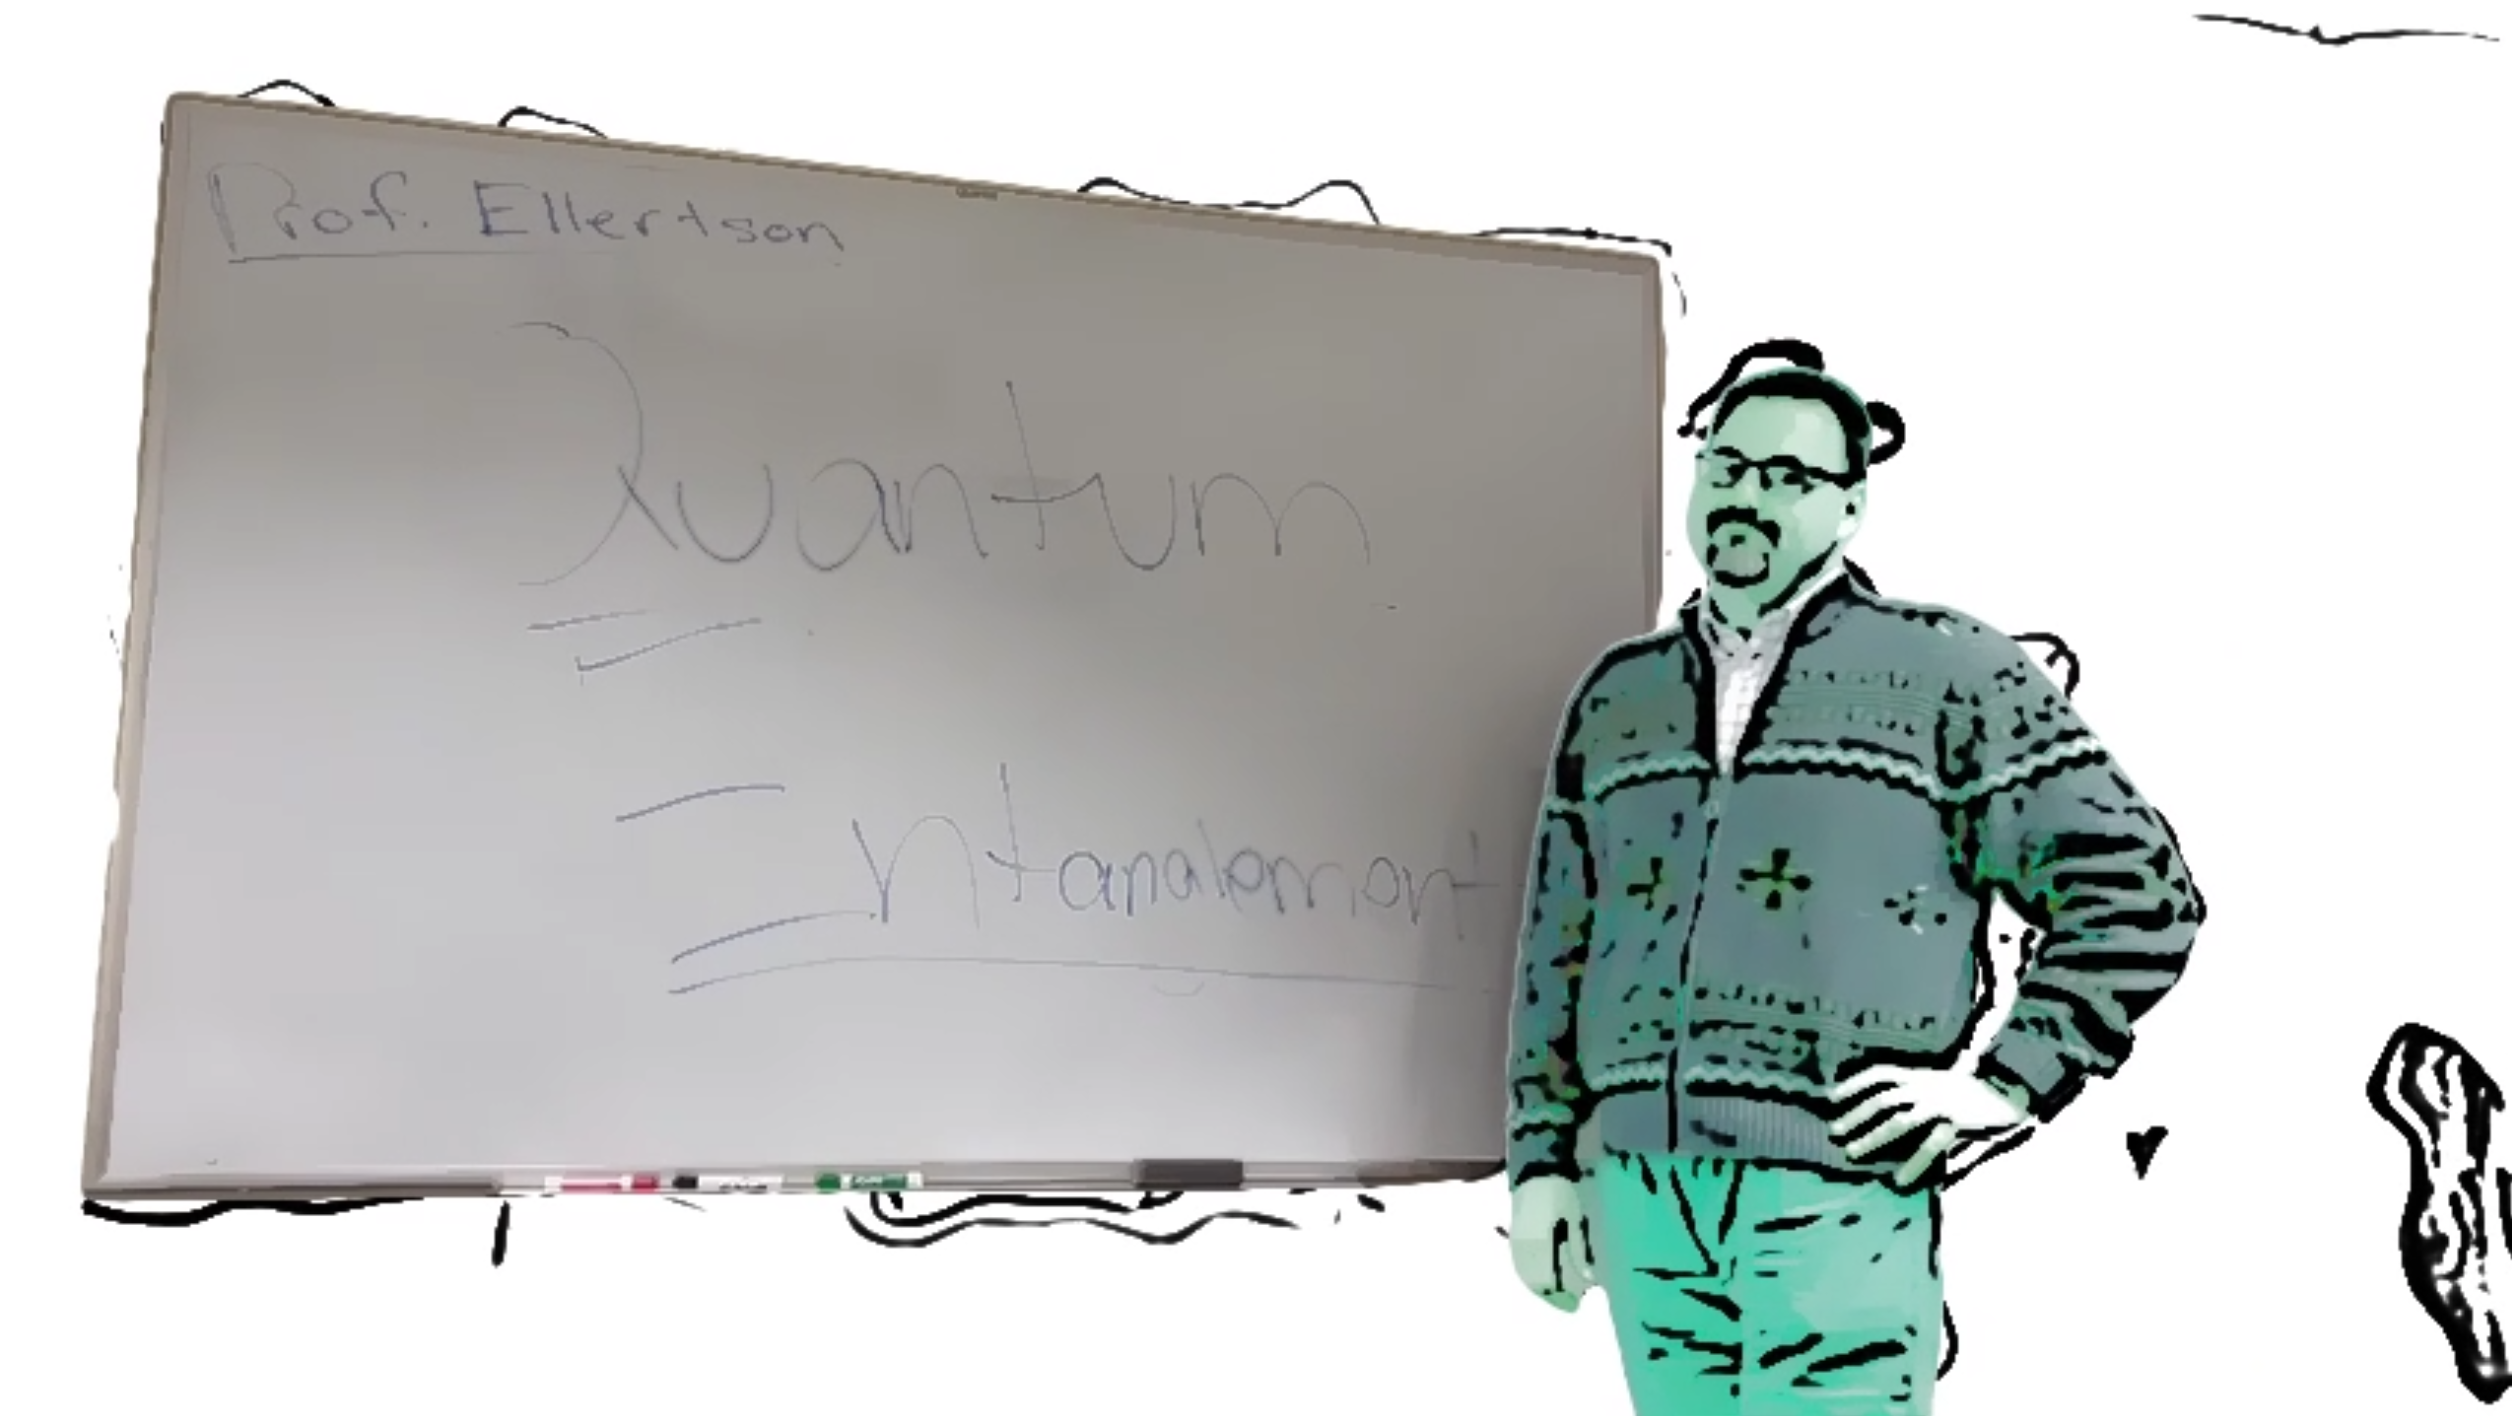 Prof. Ellertson
Quantum
Entanglement